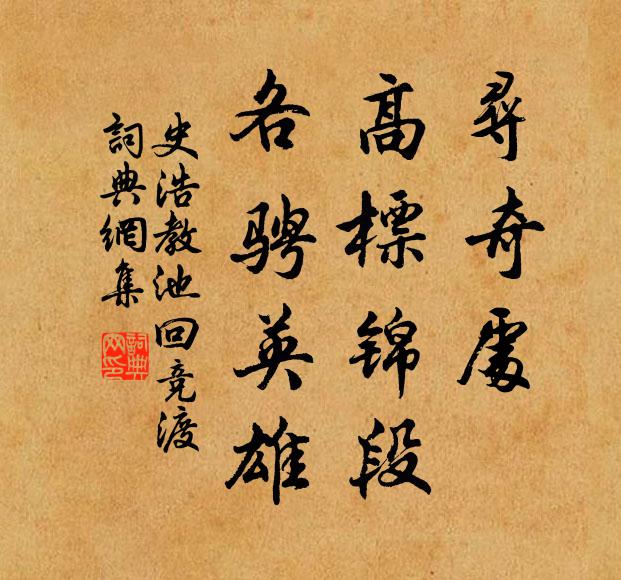 尋奇處
高標锦段
各骋英雄
史浩教池回竞渡
詞典網集
詞典
网印